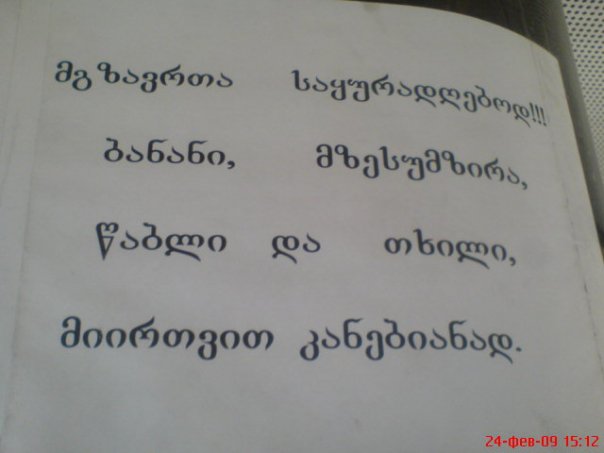 მგზავრთა საყურადღებოდ!!!
ბანანი, მზესუმზირა,
წაბლი და თხილი,
მიირთვით კანებიანად.
24-фев-09 15:12